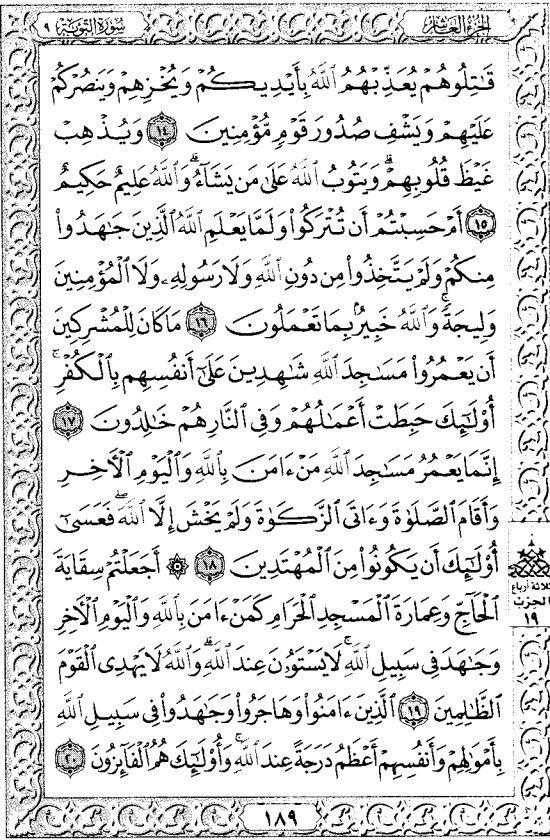 سُورَةُ التَّوۡبَةِ ٩
الجُزْءُ العَاشِرُ
قَٰتِلُوهُمۡ يُعَذِّبۡهُمُ ٱللَّهُ بِأَيۡدِيكُمۡ وَيُخۡزِهِمۡ وَيَنصُرۡكُمۡ
عَلَيۡهِمۡ وَيَشۡفِ صُدُورَ قَوۡمٖ مُّؤۡمِنِينَ ١٤ وَيُذۡهِبۡ
غَيۡظَ قُلُوبِهِمۡۗ وَيَتُوبُ ٱللَّهُ عَلَىٰ مَن يَشَآءُۗ وَٱللَّهُ عَلِيمٌ حَكِيمٌ
١٥ أَمۡ حَسِبۡتُمۡ أَن تُتۡرَكُواْ وَلَمَّا يَعۡلَمِ ٱللَّهُ ٱلَّذِينَ جَٰهَدُواْ
مِنكُمۡ وَلَمۡ يَتَّخِذُواْ مِن دُونِ ٱللَّهِ وَلَا رَسُولِهِۦ وَلَا ٱلۡمُؤۡمِنِينَ
وَلِيجَةٗۚ وَٱللَّهُ خَبِيرُۢ بِمَا تَعۡمَلُونَ ١٦ مَا كَانَ لِلۡمُشۡرِكِينَ
أَن يَعۡمُرُواْ مَسَٰجِدَ ٱللَّهِ شَٰهِدِينَ عَلَىٰٓ أَنفُسِهِم بِٱلۡكُفۡرِۚ
أُوْلَٰٓئِكَ حَبِطَتۡ أَعۡمَٰلُهُمۡ وَفِي ٱلنَّارِ هُمۡ خَٰلِدُونَ ١٧
إِنَّمَا يَعۡمُرُ مَسَٰجِدَ ٱللَّهِ مَنۡ ءَامَنَ بِٱللَّهِ وَٱلۡيَوۡمِ ٱلۡأٓخِرِ
وَأَقَامَ ٱلصَّلَوٰةَ وَءَاتَى ٱلزَّكَوٰةَ وَلَمۡ يَخۡشَ إِلَّا ٱللَّهَۖ فَعَسَىٰٓ
أُوْلَٰٓئِكَ أَن يَكُونُواْ مِنَ ٱلۡمُهۡتَدِينَ ١٨ ۞ أَجَعَلۡتُمۡ سِقَايَةَ
ٱلۡحَآجِّ وَعِمَارَةَ ٱلۡمَسۡجِدِ ٱلۡحَرَامِ كَمَنۡ ءَامَنَ بِٱللَّهِ وَٱلۡيَوۡمِ ٱلۡأٓخِرِ
وَجَٰهَدَ فِي سَبِيلِ ٱللَّهِۚ لَا يَسۡتَوُۥنَ عِندَ ٱللَّهِۗ وَٱللَّهُ لَا يَهۡدِي ٱلۡقَوۡمَ
ٱلظَّٰلِمِينَ ١٩ ٱلَّذِينَ ءَامَنُواْ وَهَاجَرُواْ وَجَٰهَدُواْ فِي سَبِيلِ ٱللَّهِ
بِأَمۡوَٰلِهِمۡ وَأَنفُسِهِمۡ أَعۡظَمُ دَرَجَةً عِندَ ٱللَّهِۚ وَأُوْلَٰٓئِكَ هُمُ ٱلۡفَآئِزُونَ ٢٠
ثلاثة أرباع
الحزب
١٩
١٨٩